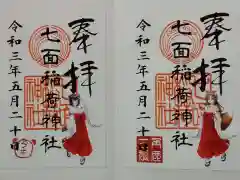 奉拝
七面稲荷神社
令和三年五月二十日
奉拝
七面稲荷神社
令和三年五月二十日